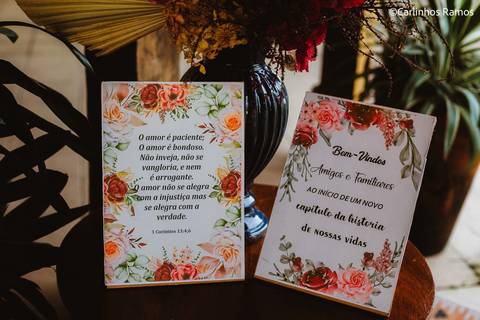 ©Carlinhos Ramos
O amor é paciente;
O amor é bondoso.
Não inveja, não se
vangloria, e nem
é arrogante.
amor não se alegra
com a injustiça mas
se alegra com a
verdade.
1 Coríntios 13:4,6
Bem-Vindos
Amigos e Familiares
AO INÍCIO DE UM NOVO
capítulo da historia
DE NOSSAS VIDAS